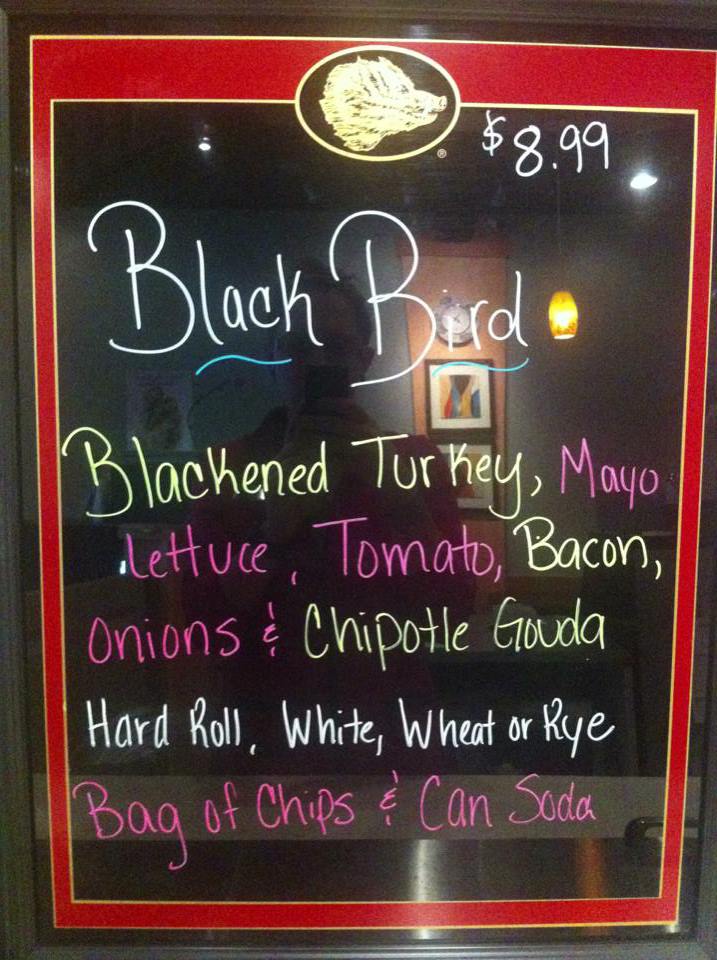 $8.99
Black Bird
Blackened Turkey, Mayo
Lettuce, Tomato, Bacon,
Onions & Chipotle Gouda
Hard Roll, White, Wheat or Rye
Bag of Chips & Can Soda